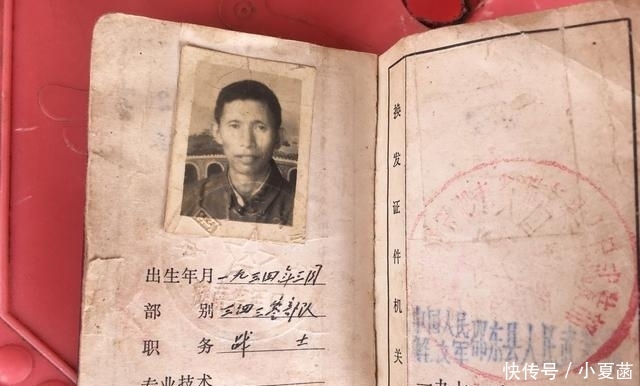 出生年月 一九三四年三月
部别 三四二零部队
职务 战士
专业技术
换发证件机关
中国人民
解放军 邵东县人民武
一九
快传号/小夏菌